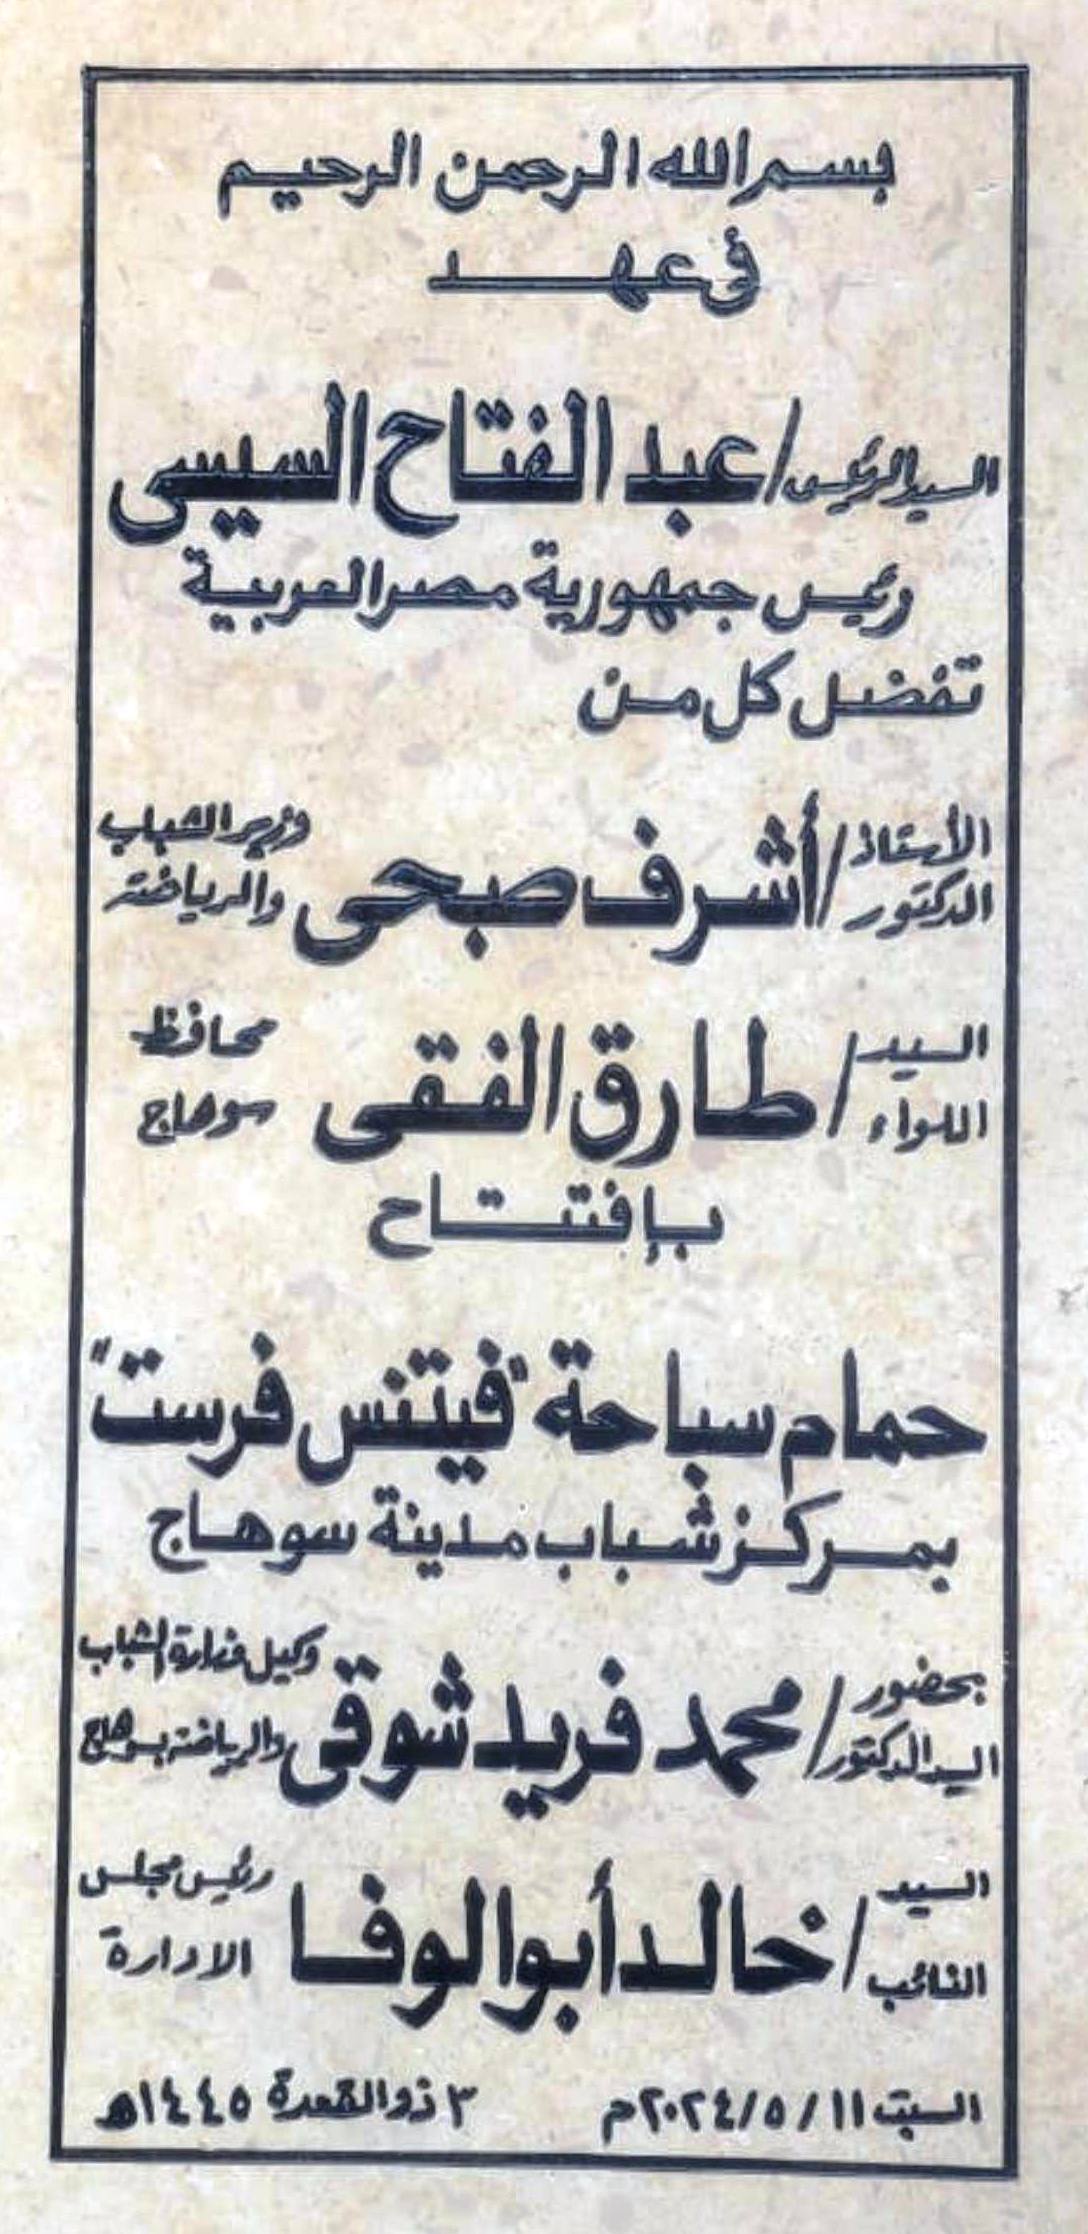 بسم الله الرحمن الرحيم
فى عهد
السيد الرئيس / عبد الفتاح السيسى
رئيس جمهورية مصر العربية
تفضل كل من
الأستاذ الدكتور / أشرف صبحى وزير الشباب والرياضة
السيد اللواء / طارق الفقى محافظ سوهاج
بإفتتاح
حمام سباحة "فيتنس فرست"
بمركز شباب مدينة سوهاج
بحضور السيد الدكتور / محمد فريد شوقى وكيل وزارة الشباب والرياضة بسوهاج
السيد النائب / خالد أبو الوفا رئيس مجلس الادارة
السبت ١١ / ٥ / ٢٠٢٤م ٣ ذو القعدة ١٤٤٥هـ